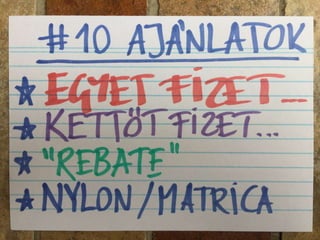 #10 AJÁNLATOK
EGYET FIZET...
KETTŐT FIZET...
"REBATE"
NYLON/MATRICA